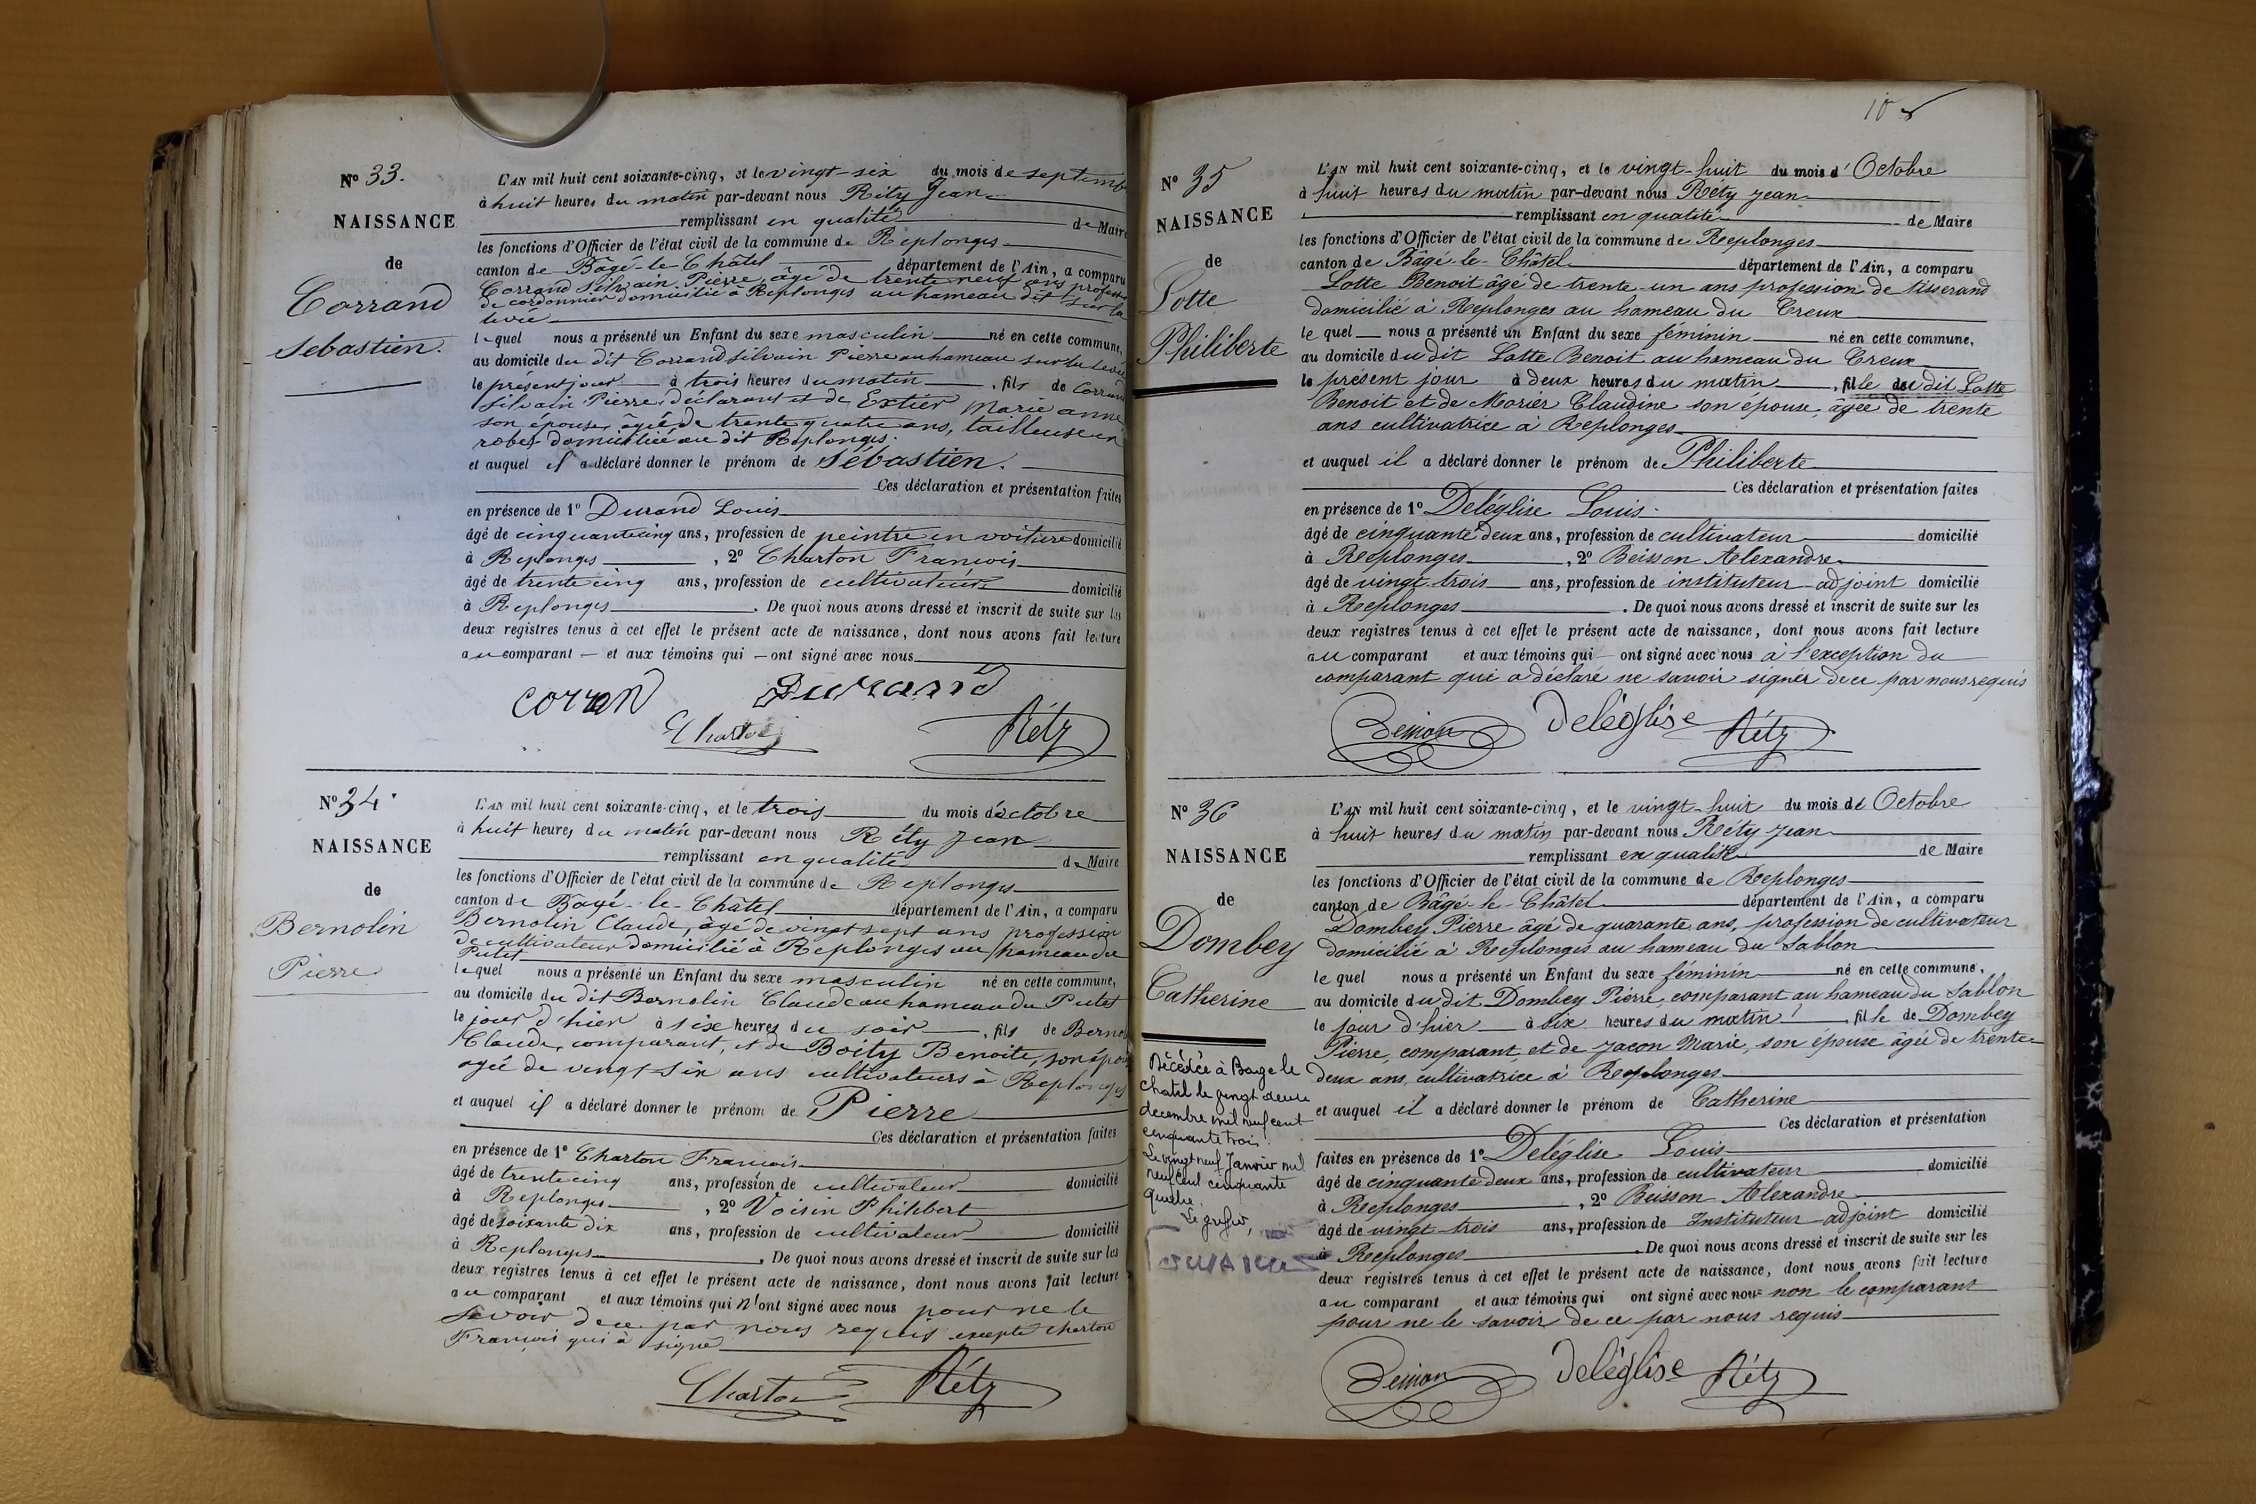 N° 33.
NAISSANCE
de
Corrand
Sebastien.
L'AN mil huit cent soixante-cinq, et le vingt-six du mois de septemb
à huit heures du matin par-devant nous Réty Jean
remplissant en qualité de Maire
les fonctions d'Officier de l'état civil de la commune de Replonges
canton de Bâgé-le-Châtel département de l'Ain, a comparu
Corrand Silvain Pierre, âgé de trente neuf ans profession
de cordonnier domicilié à Replonges au hameau dit sur la
levée
lequel nous a présenté un Enfant du sexe masculin né en cette commune,
au domicile du dit Corrand silvain Pierre au hameau sur la levée
le présent jour à trois heures du matin, fils de Corrand
Silvain Pierre, déclarant et de Extier Marie anne
son épouse, âgée de trente quatre ans, tailleuse en
robes domiciliée au dit Replonges.
et auquel il a déclaré donner le prénom de Sébastien.
Ces déclaration et présentation faites
en présence de 1° Durand Louis
âgé de cinquante cinq ans, profession de peintre en voiture domicilié
à Replonges, 2° Charton Francois
âgé de trente cinq ans, profession de cultivateur domicilié
à Replonges. De quoi nous avons dressé et inscrit de suite sur les
deux registres tenus à cet effet le présent acte de naissance, dont nous avons fait lecture
au comparant et aux témoins qui ont signé avec nous
corran Durand
Charton Réty
N° 34.
NAISSANCE
de
Bernolin
Pierre
L'AN mil huit cent soixante-cinq, et le trois du mois d'octobre
à huit heures du matin par-devant nous Réty Jean
remplissant en qualité de Maire
les fonctions d'Officier de l'état civil de la commune de Replonges
canton de Bagé-le-Châtel département de l'Ain, a comparu
Bernolin Claude, âgé de vingt sept ans profession
de cultivateur domicilié à Replonges au hameau du
Putet
lequel nous a présenté un Enfant du sexe masculin né en cette commune,
au domicile du dit Bernolin Claude au hameau du Putet
le jour d'hier à six heures du soir, fils de Berno
Claude, comparant, et de Boity Benoite, son épou
agée de vingt-six ans cultivateurs à Replonges
et auquel il a déclaré donner le prénom de Pierre
Ces déclaration et présentation faites
en présence de 1° Charton Francois
âgé de trente cinq ans, profession de cultivateur domicilié
à Replonges, 2° Voisin Philibert
âgé de soixante dix ans, profession de cultivateur domicilié
à Replonges. De quoi nous avons dressé et inscrit de suite sur les
deux registres tenus à cet effet le présent acte de naissance, dont nous avons fait lecture
au comparant et aux témoins qui n'ont signé avec nous pour ne le
savoir de ce par nous requis excepté Charton
François qui à signé
Charton Réty
10
N° 35
NAISSANCE
de
Lotte
Philiberte
L'AN mil huit cent soixante-cinq, et le vingt-huit du mois d'Octobre
à huit heures du matin par-devant nous Réty Jean
remplissant en qualité de Maire
les fonctions d'Officier de l'état civil de la commune de Replonges
canton de Bâgé-le-Châtel département de l'Ain, a comparu
Lotte Benoit âgé de trente-un ans profession de tisserand
domicilié à Replonges au hameau du Creux
le quel nous a présenté un Enfant du sexe féminin né en cette commune,
au domicile du dit Lotte Benoit au hameau du Creux
le présent jour à deux heures du matin, fille du dit Lotte
Benoit et de Morier Claudine son épouse, âgée de trente
ans cultivatrice à Replonges
et auquel il a déclaré donner le prénom de Philiberte
Ces déclaration et présentation faites
en présence de 1° Deléglise Louis.
âgé de cinquante deux ans, profession de cultivateur domicilié
à Replonges, 2° Beisson Alexandre
âgé de vingt trois ans, profession de instituteur adjoint domicilié
à Replonges. De quoi nous avons dressé et inscrit de suite sur les
deux registres tenus à cet effet le présent acte de naissance, dont nous avons fait lecture
au comparant et aux témoins qui ont signé avec nous à l'exception du
comparant qui a déclaré ne savoir signer de ce par nous requis
Deléglise Réty
N° 36
NAISSANCE
de
Dombey
Catherine
Décédée à Bage le
chatel le vingt deux
decembre mil neuf cent
cinquante trois.
Le vingt neuf Janvier mil
neuf cent cinquante
quatre.
Le greffier,
L'AN mil huit cent soixante-cinq, et le vingt-huit du mois de Octobre
à huit heures du matin par-devant nous Réty Jean
remplissant en qualité de Maire
les fonctions d'Officier de l'état civil de la commune de Replonges
canton de Bâgé-le-Châtel département de l'Ain, a comparu
Dombey Pierre âgé de quarante ans, profession de cultivateur
domicilié à Replonges au hameau du Sablon
le quel nous a présenté un Enfant du sexe féminin né en cette commune,
au domicile du dit Dombey Pierre, comparant au hameau du Sablon
le jour d'hier à six heures du matin, fille de Dombey
Pierre, comparant, et de Jacon Marie, son épouse âgée de trente-
deux ans, cultivatrice à Replonges
et auquel il a déclaré donner le prénom de Catherine
Ces déclaration et présentation
faites en présence de 1° Deléglise Louis
âgé de cinquante deux ans, profession de cultivateur domicilié
à Replonges, 2° Beisson Alexandre
âgé de vingt trois ans, profession de Instituteur adjoint domicilié
à Replonges. De quoi nous avons dressé et inscrit de suite sur les
deux registres tenus à cet effet le présent acte de naissance, dont nous avons fait lecture
au comparant et aux témoins qui ont signé avec nous non le comparant
pour ne le savoir de ce par nous requis
Deléglise Réty